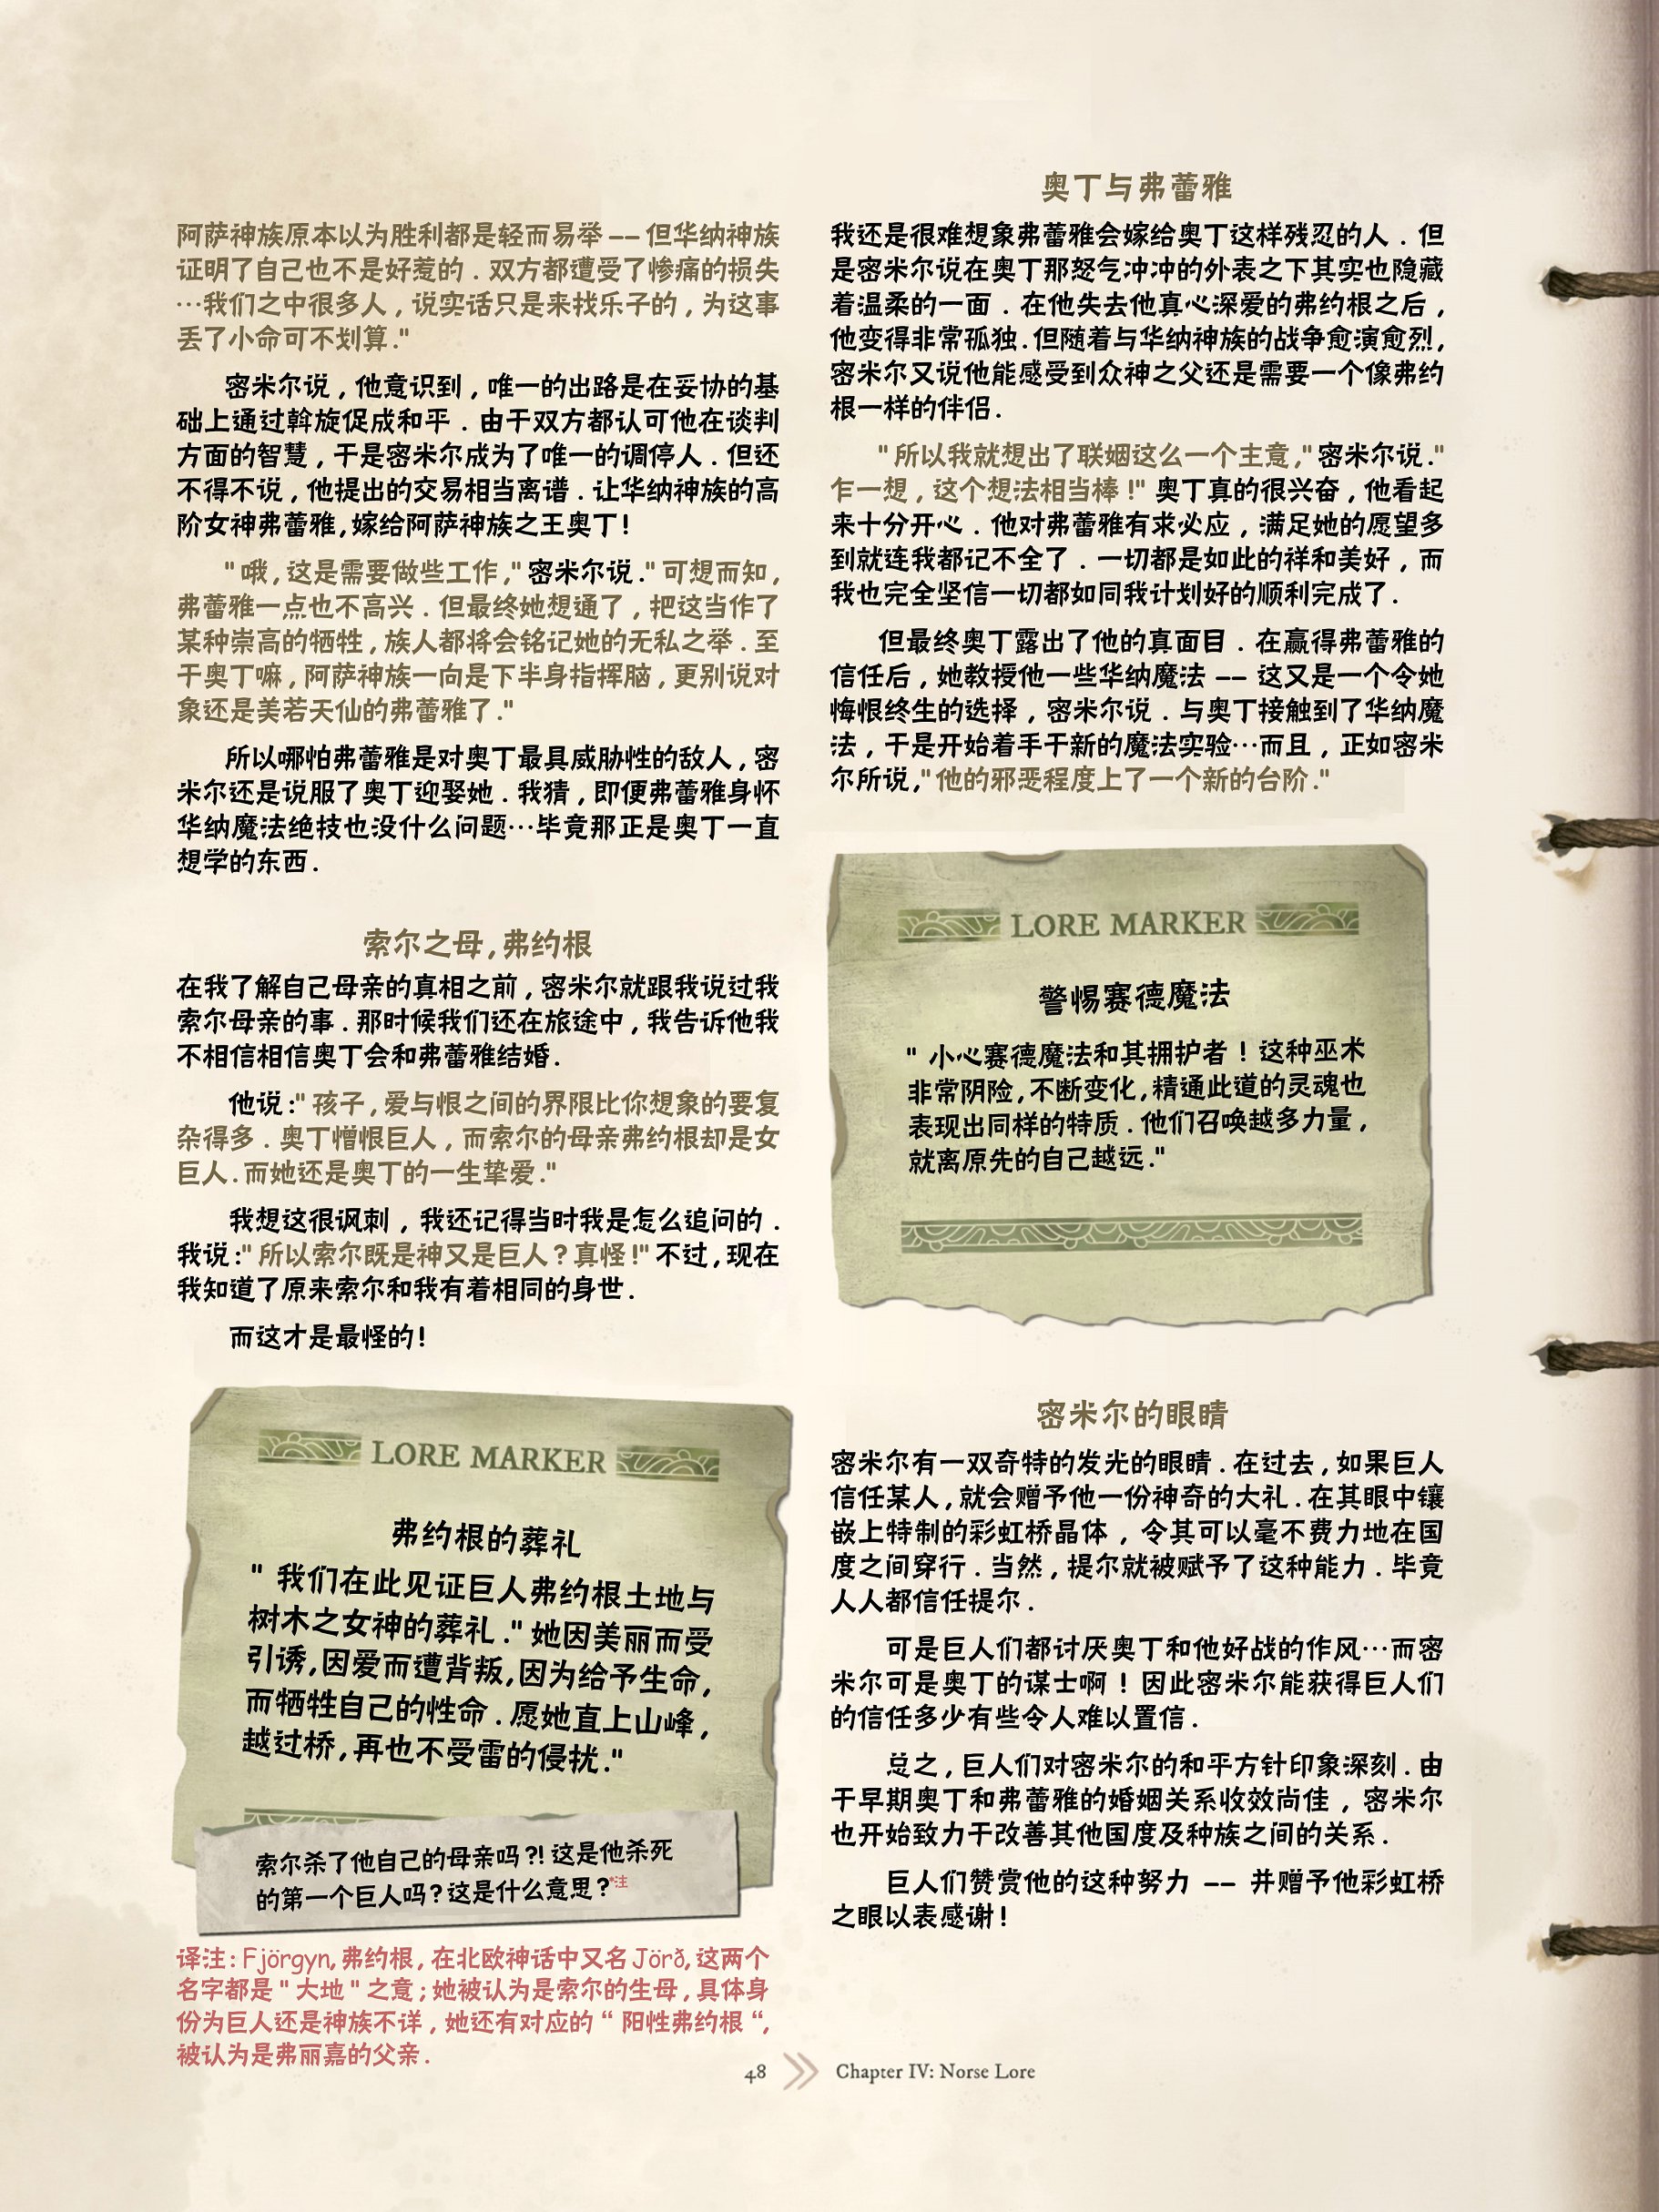 阿萨神族原本以为胜利都是轻而易举 -- 但华纳神族
证明了自己也不是好惹的 . 双方都遭受了惨痛的损失
…我们之中很多人 , 说实话只是来找乐子的 , 为这事
丢了小命可不划算 ."
密米尔说 , 他意识到 , 唯一的出路是在妥协的基
础上通过斡旋促成和平 . 由于双方都认可他在谈判
方面的智慧 , 于是密米尔成为了唯一的调停人 . 但还
不得不说 , 他提出的交易相当离谱 . 让华纳神族的高
阶女神弗蕾雅, 嫁给阿萨神族之王奥丁 !
" 哦, 这是需要做些工作," 密米尔说 ." 可想而知,
弗蕾雅一点也不高兴 . 但最终她想通了 , 把这当作了
某种崇高的牺牲 , 族人都将会铭记她的无私之举 . 至
于奥丁嘛 , 阿萨神族一向是下半身指挥脑 , 更别说对
象还是美若天仙的弗蕾雅了 ."
所以哪怕弗蕾雅是对奥丁最具威胁性的敌人 , 密
米尔还是说服了奥丁迎娶她 . 我猜 , 即便弗蕾雅身怀
华纳魔法绝技也没什么问题…毕竟那正是奥丁一直
想学的东西 .
索尔之母 , 弗约根
在我了解自己母亲的真相之前 , 密米尔就跟我说过我
索尔母亲的事 . 那时候我们还在旅途中 , 我告诉他我
不相信相信奥丁会和弗蕾雅结婚 .
他说 :" 孩子 , 爱与恨之间的界限比你想象的要复
杂得多 . 奥丁憎恨巨人 , 而索尔的母亲弗约根却是女
巨人 . 而她还是奥丁的一生挚爱 ."
我想这很讽刺 , 我还记得当时我是怎么追问的 .
我说 :" 所以索尔既是神又是巨人 ? 真怪 !" 不过 , 现在
我知道了原来索尔和我有着相同的身世 .
而这才是最怪的 !
LORE MARKER
弗约根的葬礼
" 我们在此见证巨人弗约根土地与
树木之女神的葬礼 ." 她因美丽而受
引诱 , 因爱而遭背叛, 因为给予生命,
而牺牲自己的性命 . 愿她直上山峰 ,
越过桥 , 再也不受雷的侵扰 ."
索尔杀了他自己的母亲吗 ?! 这是他杀死
的第一个巨人吗 ? 这是什么意思 ?*注
译注 : Fjörgyn, 弗约根 , 在北欧神话中又名 Jörð, 这两个
名字都是 " 大地 " 之意 ; 她被认为是索尔的生母 , 具体身
份为巨人还是神族不详 , 她还有对应的 “ 阳性弗约根 “,
被认为是弗丽嘉的父亲 .
奥丁与弗蕾雅
我还是很难想象弗蕾雅会嫁给奥丁这样残忍的人 . 但
是密米尔说在奥丁那怒气冲冲的外表之下其实也隐藏
着温柔的一面 . 在他失去他真心深爱的弗约根之后 ,
他变得非常孤独 . 但随着与华纳神族的战争愈演愈烈,
密米尔又说他能感受到众神之父还是需要一个像弗约
根一样的伴侣 .
" 所以我就想出了联姻这么一个主意," 密米尔说 ."
乍一想 , 这个想法相当棒 !" 奥丁真的很兴奋 , 他看起
来十分开心 . 他对弗蕾雅有求必应 , 满足她的愿望多
到就连我都记不全了 . 一切都是如此的祥和美好 , 而
我也完全坚信一切都如同我计划好的顺利完成了 .
但最终奥丁露出了他的真面目 . 在赢得弗蕾雅的
信任后 , 她教授他一些华纳魔法 -- 这又是一个令她
悔恨终生的选择 , 密米尔说 . 与奥丁接触到了华纳魔
法 , 于是开始着手于新的魔法实验…而且 , 正如密米
尔所说," 他的邪恶程度上了一个新的台阶 ."
LORE MARKER
警惕赛德魔法
" 小心赛德魔法和其拥护者 ! 这种巫术
非常阴险, 不断变化, 精通此道的灵魂也
表现出同样的特质 . 他们召唤越多力量 ,
就离原先的自己越远 ."
密米尔的眼睛
密米尔有一双奇特的发光的眼睛 . 在过去 , 如果巨人
信任某人 , 就会赠予他一份神奇的大礼 . 在其眼中镶
嵌上特制的彩虹桥晶体 , 令其可以毫不费力地在国
度之间穿行 . 当然 , 提尔就被赋予了这种能力 . 毕竟
人人都信任提尔 .
可是巨人们都讨厌奥丁和他好战的作风…而密
米尔可是奥丁的谋士啊 ! 因此密米尔能获得巨人们
的信任多少有些令人难以置信 .
总之 , 巨人们对密米尔的和平方针印象深刻 . 由
于早期奥丁和弗蕾雅的婚姻关系收效尚佳 , 密米尔
也开始致力于改善其他国度及种族之间的关系 .
巨人们赞赏他的这种努力 -- 并赠予他彩虹桥
之眼以表感谢 !
48
Chapter IV: Norse Lore